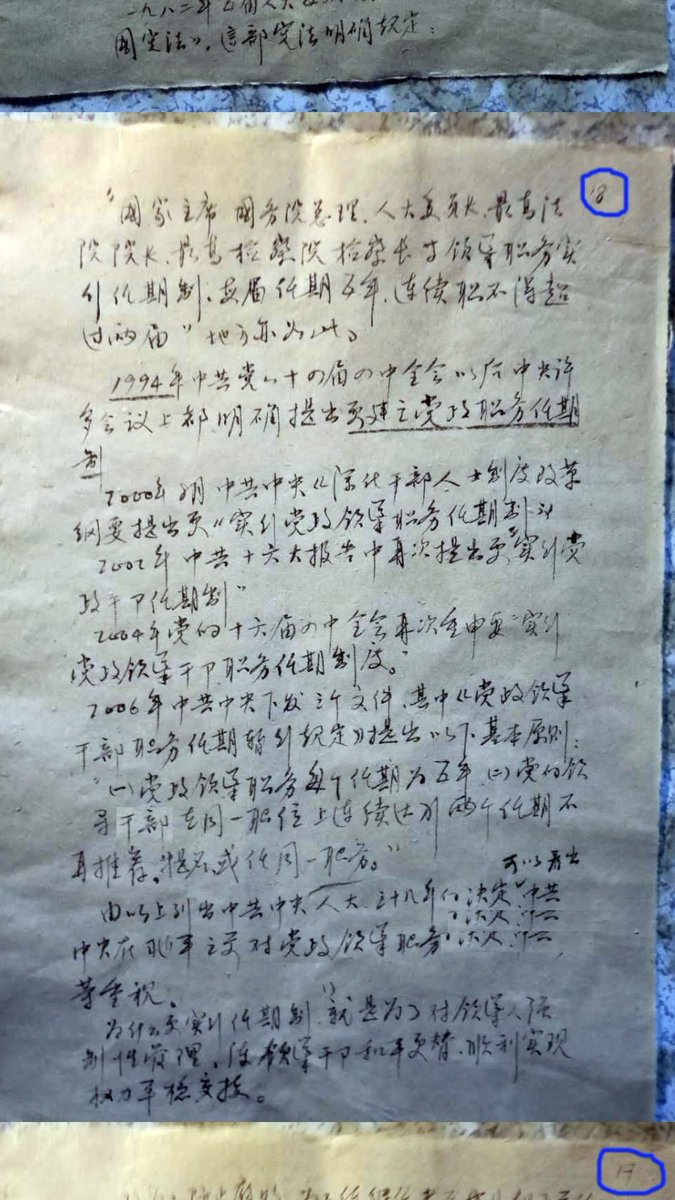 一九八二年五届人大
国宪法》，这部宪法明确规定：
18
“国家主席 国务院总理、人大委员长、最高法
院院长、最高检察院检察长等领导职务实
行任期制、每届任期五年，连续职不得超
过两届”地方亦如此。
1994年中共党的十四届四中全会以后中央许
多会议上都明确提出要建立党政职务任期
制
2000年 月中共中央《深化干部人事制度改革
纲要提出要“实行党政领导职务任期制
2002年中共十六大报告中再次提出要“实行党
政干卩任期制”
2004年党的十六届四中全会再次重申要“实行
党政领导干卩职务任期制度。”
2006年中共中央下发三个文件，其中《党政领导
干部职务任期暂行规定》提出以下基本原则：
“(一)党政领导职务每个任期为五年 (二)党的领
导干部在同一职位上连续达到两个任期不
再推荐、提名或任同一职务。”
可以看出
由以上列出中共中央、人大、三十几年的决定，中共
中央在 之前对党政领导职务
等重视。
为什么要实行任期制，就是为了对领导人强
制性管理，使领导干卩和平更替、顺利实现
权力平稳交接。
19